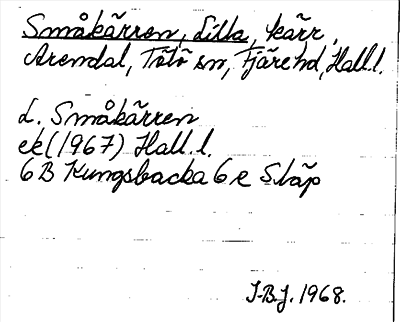 Småkärren, Lilla, kärr,
Arendal, Tölö sn, Fjäre hd, Hall.l.
L. Småkärren
ek (1967) Hall.l.
6B Kungsbacka 6 e Släp
I-B.J. 1968.